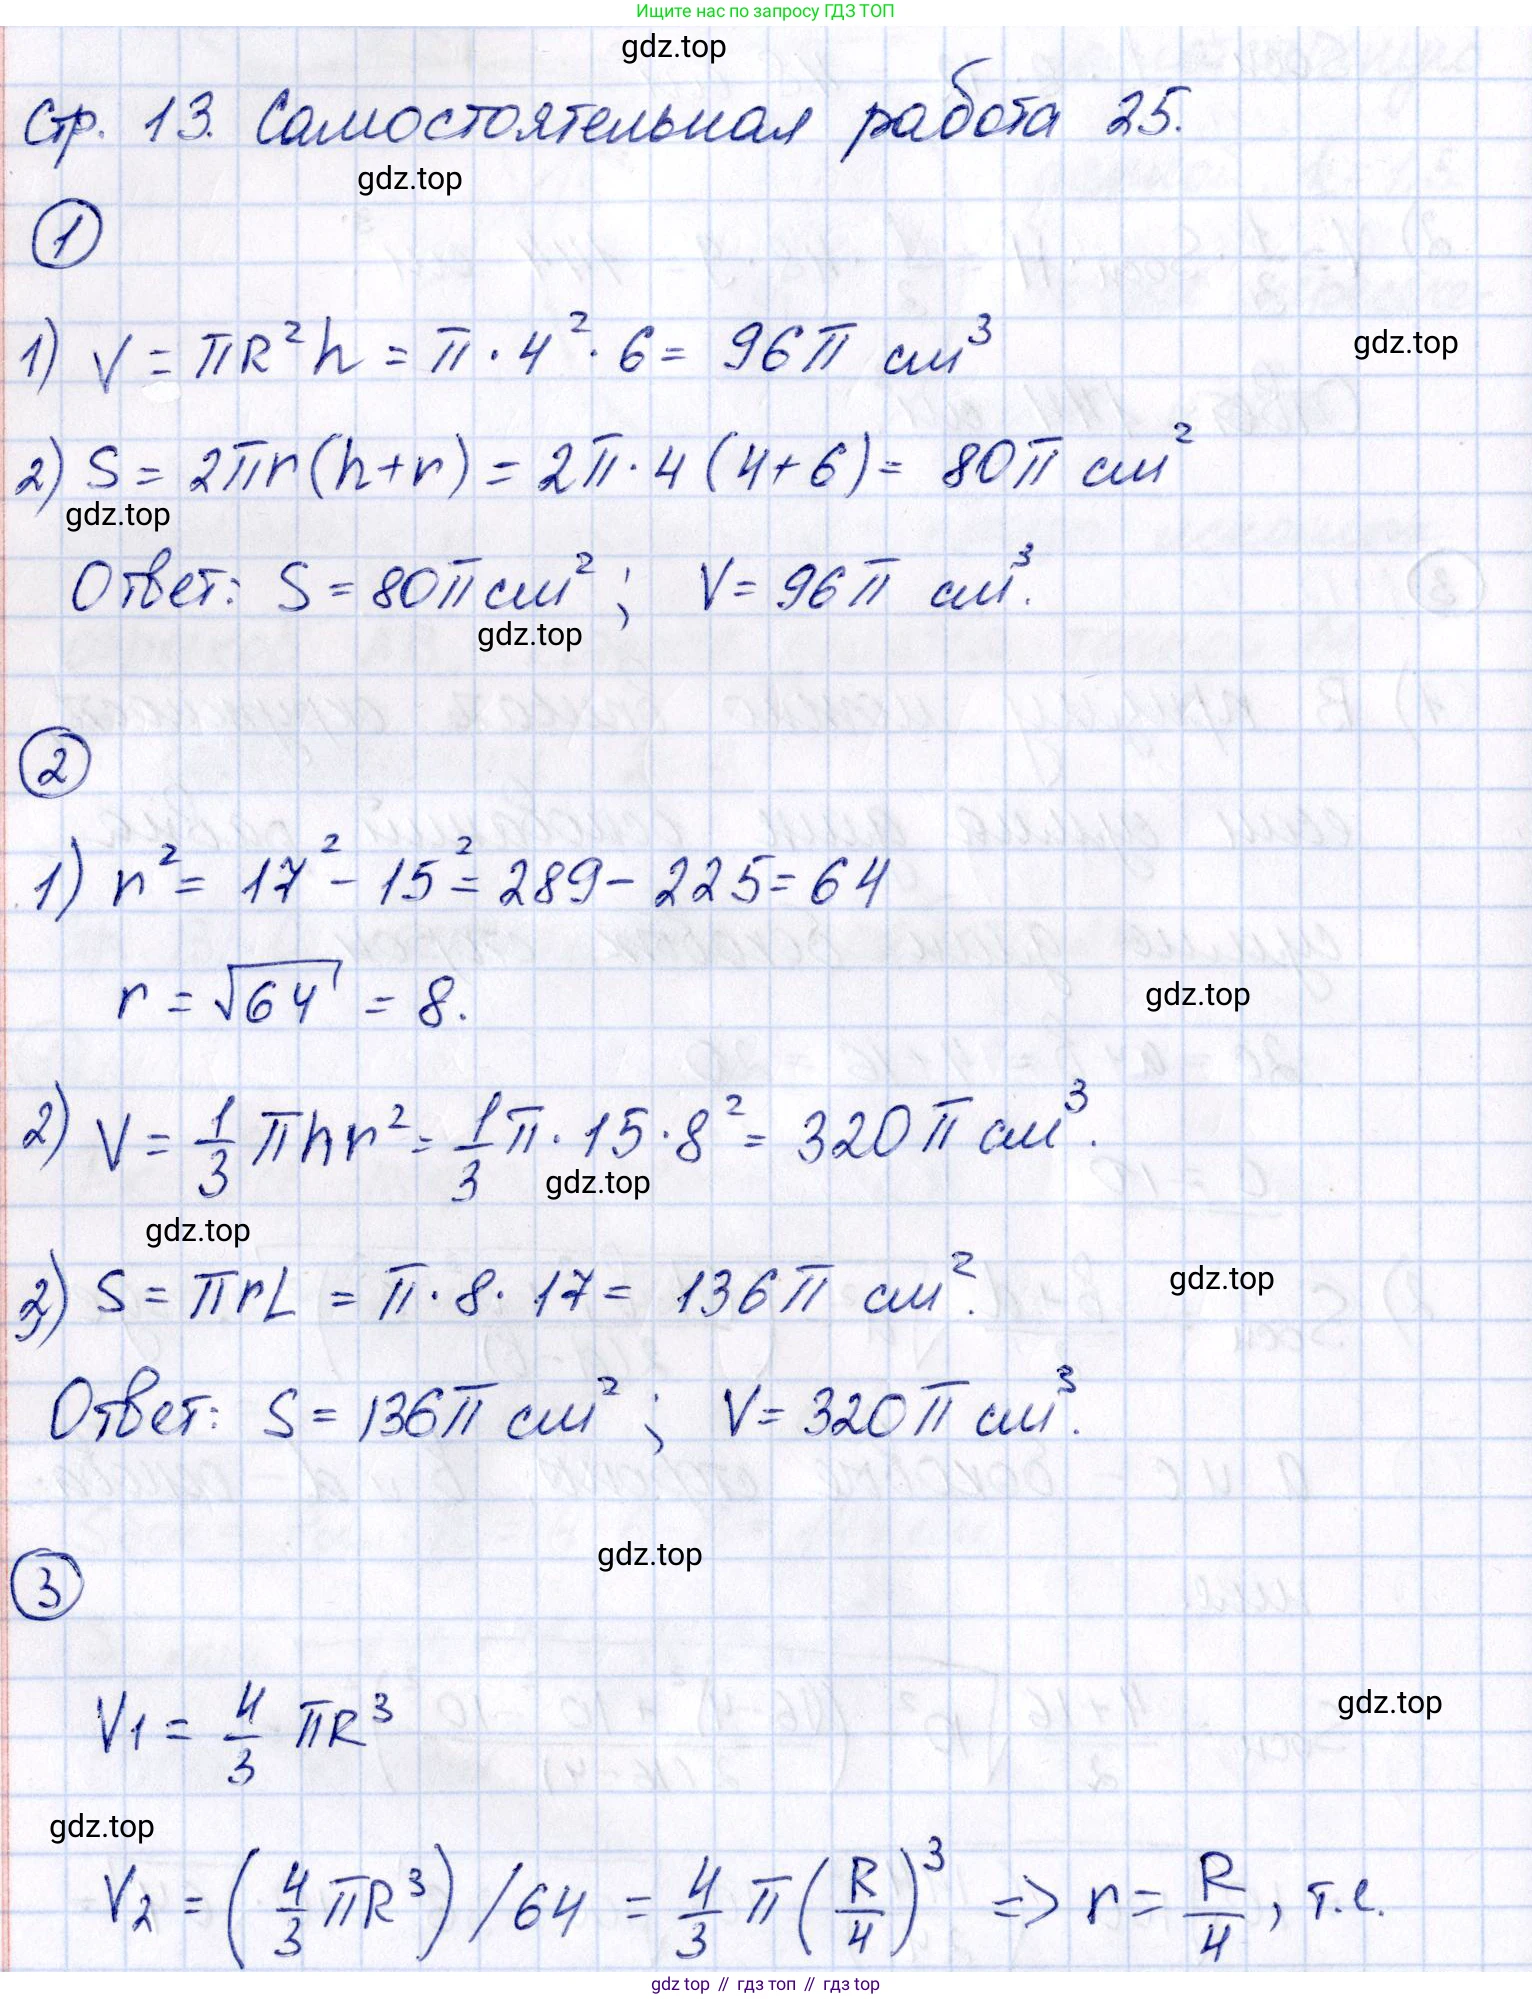 Ищите нас по запросу ГДЗ ТОП
gdz.top
Стр. 13. Самостоятельная работа 25.
gdz.top
1
1) V = πR²h = π · 4² · 6 = 96π см³
gdz.top
2) S = 2πr(h+r) = 2π · 4 (4+6) = 80π см²
gdz.top
Ответ: S = 80π см² ; V = 96π см³.
gdz.top
2
1) r² = 17² - 15² = 289 - 225 = 64
r = √64 = 8.
gdz.top
2) V = 1/3 πhr² = 1/3 π · 15 · 8² = 320π см³.
gdz.top
gdz.top
3) S = πrL = π · 8 · 17 = 136π см².
gdz.top
Ответ: S = 136π см² ; V = 320π см³.
gdz.top
3
V1 = 4/3 πR³
gdz.top
gdz.top
V2 = (4/3 πR³) / 64 = 4/3 π (R/4)³ => r = R/4, т.е.
gdz.top // гдз топ // гдз top